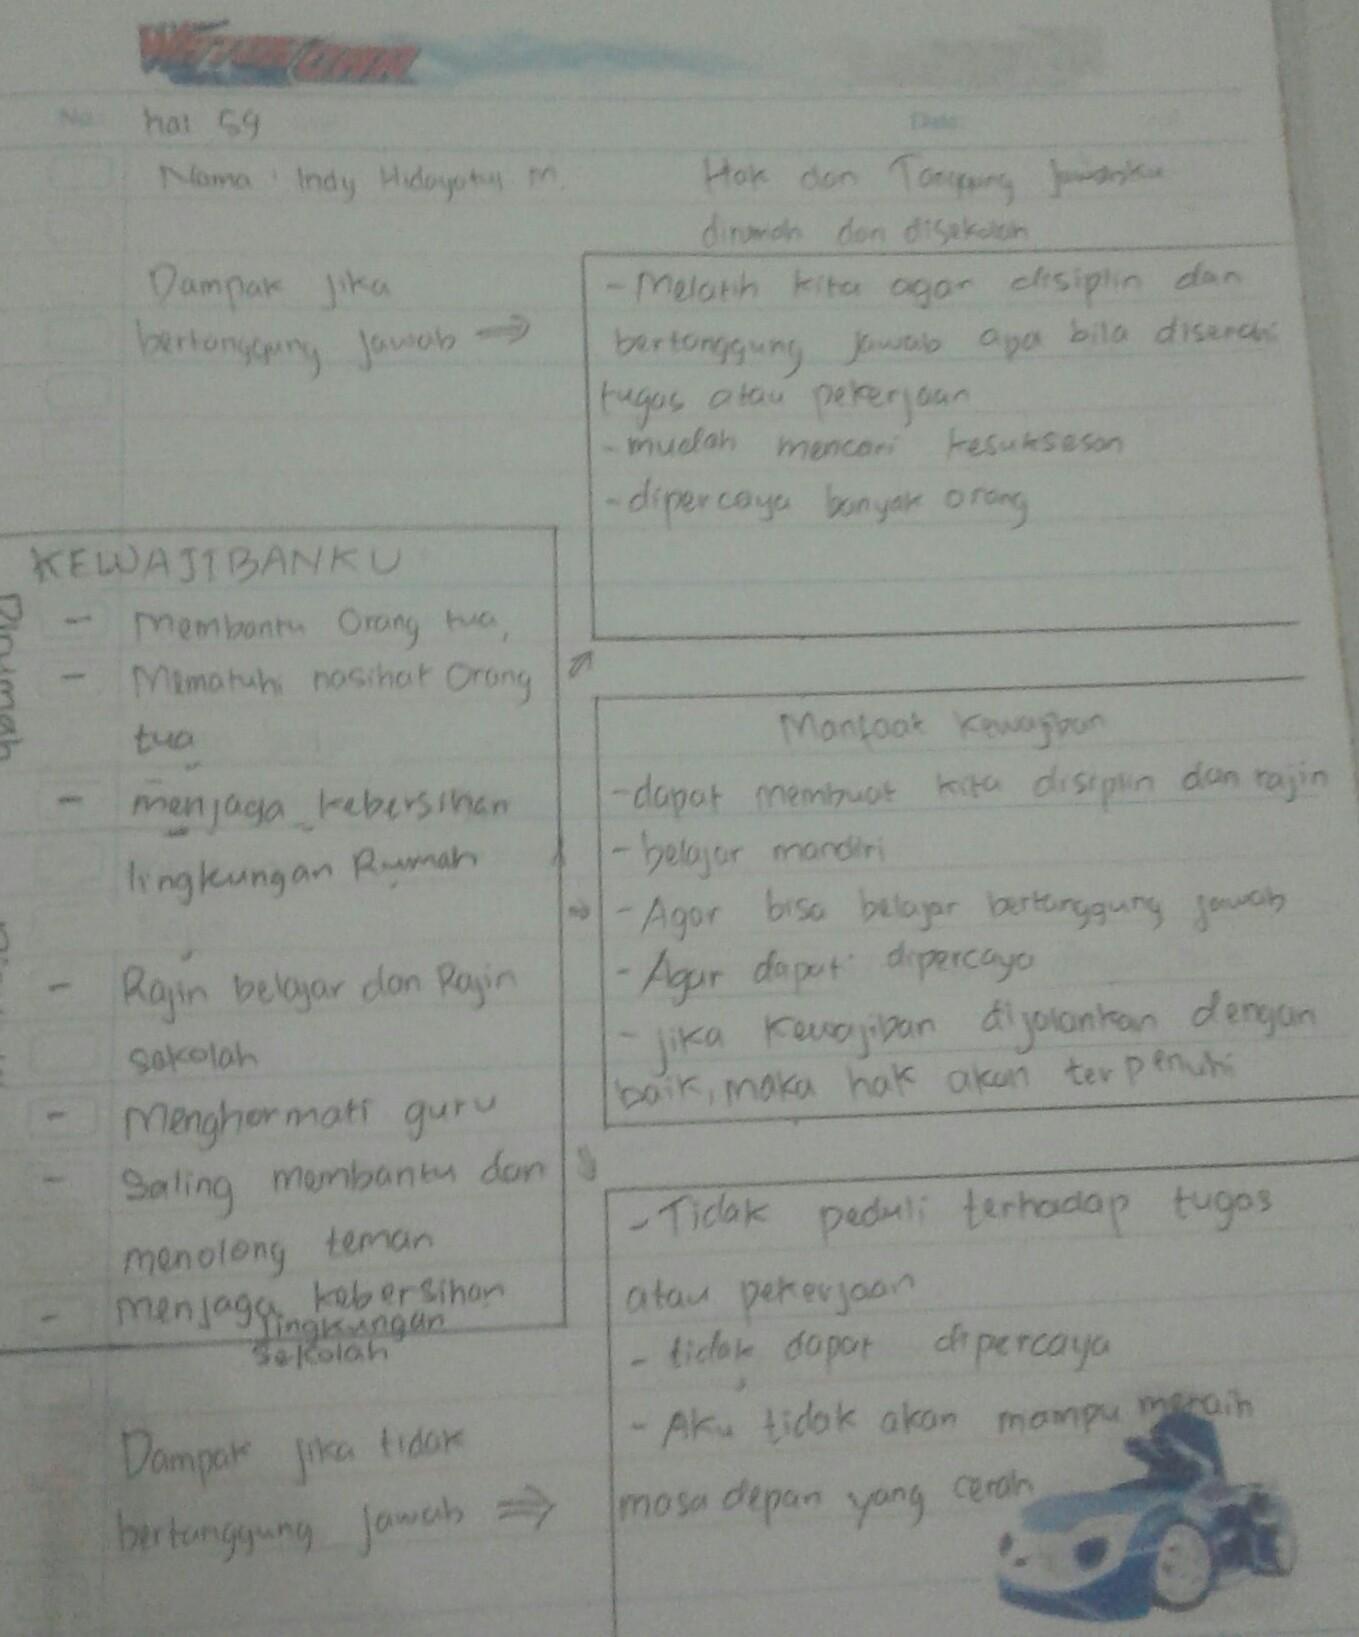 No:
hal 59
Date:
Nama : Indy Hidayatul M.
Hak dan Tanggung Jawabku
dirumah dan disekolah
Dampak jika
bertanggung jawab ⇒
- Melatih kita agar disiplin dan
bertanggung jawab apa bila diserahi
tugas atau pekerjaan
- mudah mencari kesuksesan
- dipercaya banyak orang
KEWAJIBANKU
Dirumah
- Membantu Orang tua,
- Mematuhi nasihat Orang
tua
- menjaga kebersihan
lingkungan Rumah
- Rajin belajar dan Rajin
sekolah
- Menghormati guru
- Saling membantu dan
menolong teman
- menjaga kebersihan
lingkungan
sekolah
Manfaat Kewajiban
- dapat membuat kita disiplin dan rajin
- belajar mandiri
- Agar bisa belajar bertanggung jawab
- Agar dapat dipercaya
- jika Kewajiban dijalankan dengan
baik, maka hak akan terpenuhi
Dampak jika tidak
bertanggung jawab ⇒
- Tidak peduli terhadap tugas
atau pekerjaan
- tidak dapat dipercaya
- Aku tidak akan mampu meraih
masa depan yang cerah